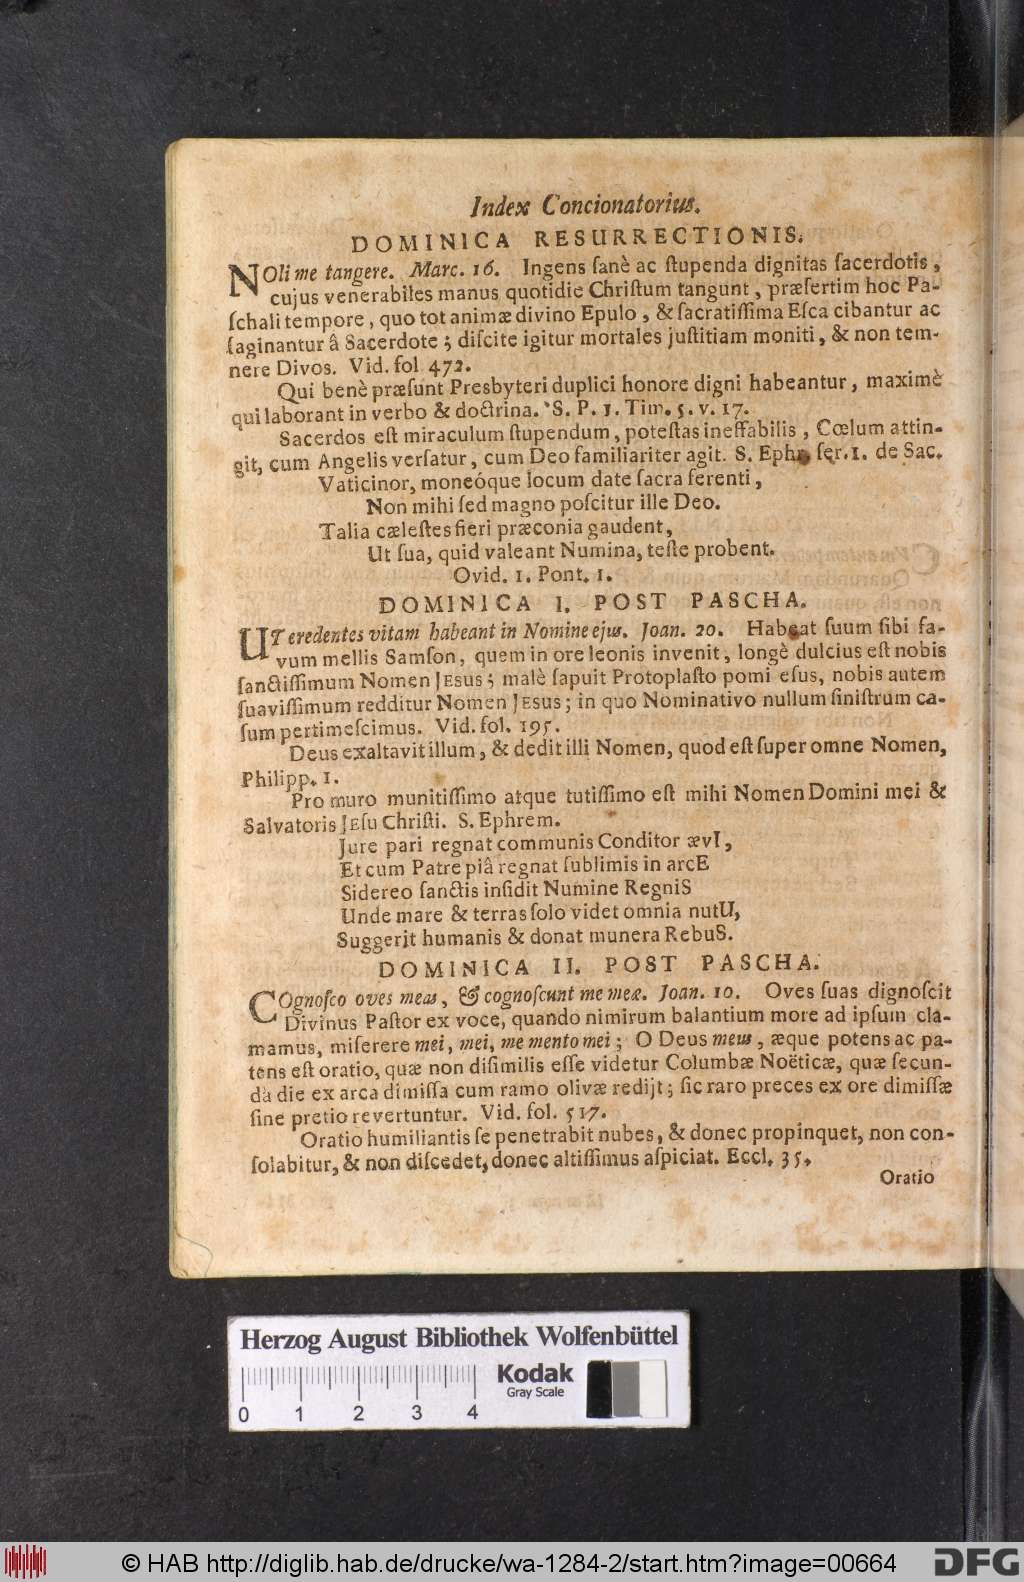 Index Concionatorius.
DOMINICA RESURRECTIONIS.
NOli me tangere. Marc. 16. Ingens ſanè ac ſtupenda dignitas ſacerdotis,
cujus venerabiles manus quotidie Chriſtum tangunt, præſertim hoc Pa-
ſchali tempore, quo tot animæ divino Epulo, & ſacratiſſima Eſca cibantur ac
ſaginantur â Sacerdote; diſcite igitur mortales juſtitiam moniti, & non tem-
nere Divos. Vid. fol 472.
Qui benè præſunt Presbyteri duplici honore digni habeantur, maximè
qui laborant in verbo & doctrina. S. P. 1. Tim. 5. v. 17.
Sacerdos eſt miraculum ſtupendum, poteſtas ineffabilis, Cœlum attin-
git, cum Angelis verſatur, cum Deo familiariter agit. S. Ephr. ſer. 1. de Sac.
Vaticinor, moneóque locum date ſacra ferenti,
Non mihi ſed magno poſcitur ille Deo.
Talia cæleſtes fieri præconia gaudent,
Ut ſua, quid valeant Numina, teſte probent.
Ovid. 1. Pont. 1.
DOMINICA I. POST PASCHA.
UT credentes vitam habeant in Nomine ejus. Joan. 20. Habeat ſuum ſibi fa-
vum mellis Samſon, quem in ore leonis invenit, longè dulcius eſt nobis
ſanctiſſimum Nomen JESUS; malè ſapuit Protoplaſto pomi eſus, nobis autem
ſuaviſſimum redditur Nomen JESUS; in quo Nominativo nullum ſiniſtrum ca-
ſum pertimeſcimus. Vid. fol. 195.
Deus exaltavit illum, & dedit illi Nomen, quod eſt ſuper omne Nomen,
Philipp. 1.
Pro muro munitiſſimo atque tutiſſimo eſt mihi Nomen Domini mei &
Salvatoris JEſu Chriſti. S. Ephrem.
Jure pari regnat communis Conditor ævI,
Et cum Patre piâ regnat ſublimis in arcE
Sidereo ſanctis inſidit Numine RegniS
Unde mare & terras ſolo videt omnia nutU,
Suggerit humanis & donat munera RebuS.
DOMINICA II. POST PASCHA.
COgnoſco oves meas, & cognoſcunt me meæ. Joan. 10. Oves ſuas dignoſcit
Divinus Paſtor ex voce, quando nimirum balantium more ad ipſum cla-
mamus, miſerere mei, mei, memento mei; O Deus meus, æque potens ac pa-
tens eſt oratio, quæ non diſimilis eſſe videtur Columbæ Noëticæ, quæ ſecun-
dà die ex arca dimiſſa cum ramo olivæ redijt; ſic raro preces ex ore dimiſſæ
ſine pretio revertuntur. Vid. fol. 517.
Oratio humiliantis ſe penetrabit nubes, & donec propinquet, non con-
ſolabitur, & non diſcedet, donec altiſſimus aſpiciat. Eccl. 35.
Oratio
Herzog August Bibliothek Wolfenbüttel
Kodak
Gray Scale
0 1 2 3 4
© HAB http://diglib.hab.de/drucke/wa-1284-2/start.htm?image=00664
DFG